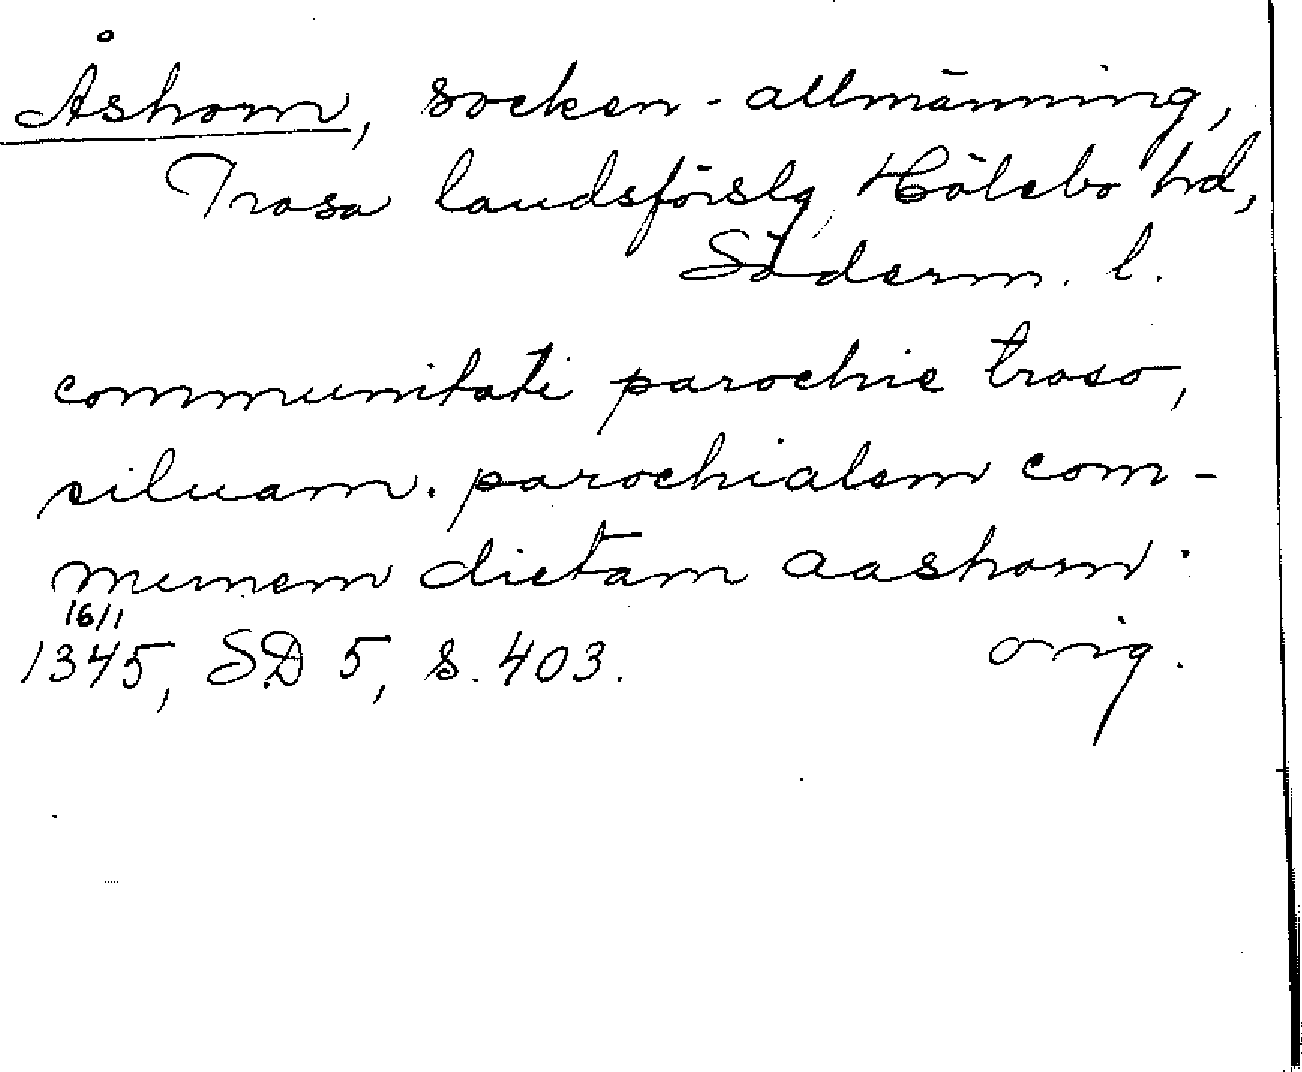 Åshorn, socken-allmänning,
Trosa landsförslg, Hölebo hd,
Söderm. l.
communitati parochie traso,
siluam. parochialem com-
munem dictam aashorn.
16/1
1345, SD 5, s. 403. orig.